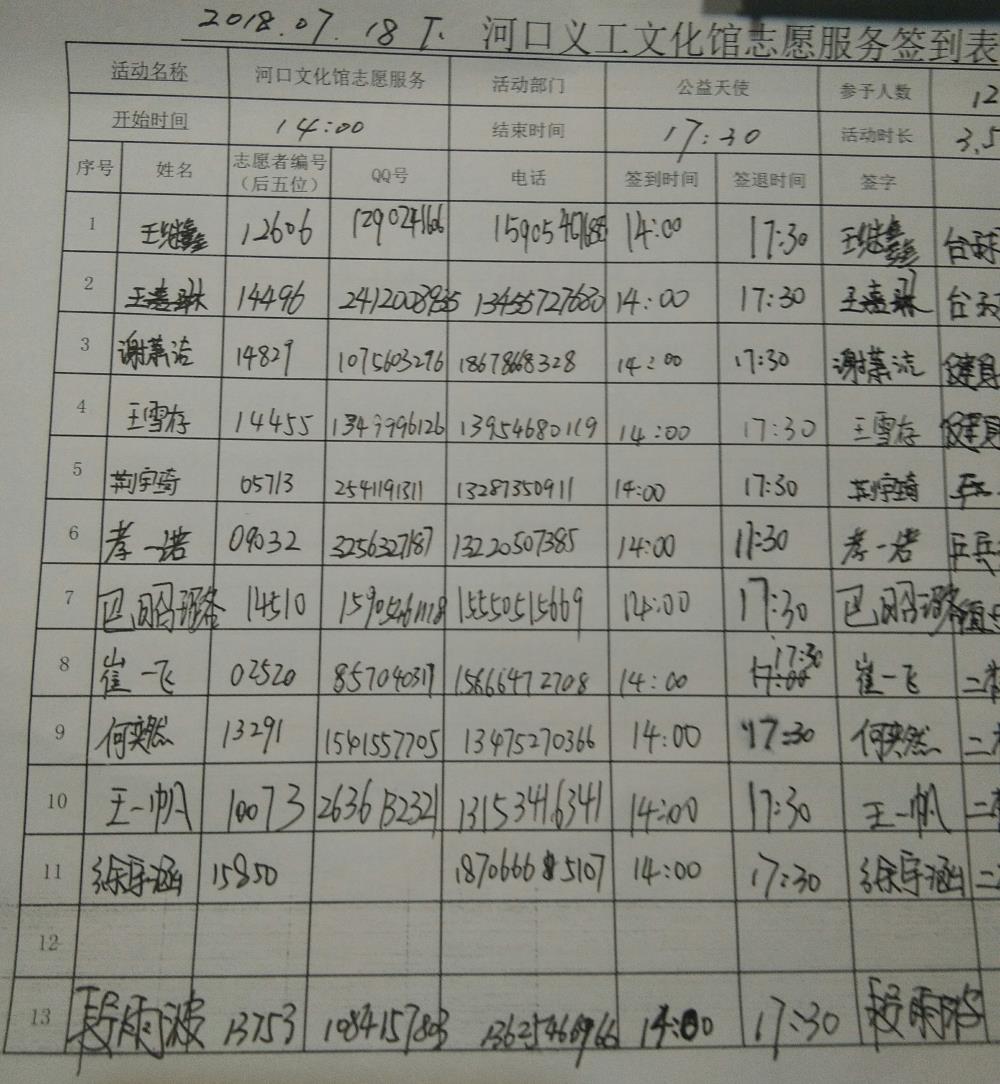 2018.07.18 下. 河口义工文化馆志愿服务签到表
活动名称 河口文化馆志愿服务 活动部门 公益天使 参予人数 12
开始时间 14:00 结束时间 17:30 活动时长 3.5
序号 姓名 志愿者编号（后五位） QQ号 电话 签到时间 签退时间 签字
1 王继鑫 12606 14:00 17:30 王继鑫
2 王嘉琳 14496 13455727680 14:00 17:30 王嘉琳
3 14829 1075603276 18678668328 14:00 17:30 健身
4 王雪存 14455 1349996126 13954680119 14:00 17:30 王雪存 健身
5 荆宇琦 05713 2541191311 13287350911 14:00 17:30 荆宇琦
6 李一诺 09032 3256327187 13220507385 14:00 17:30 李一诺 乒兵
7 14510 15550515669 14:00 17:30
8 崔一飞 02520 857040317 15666472708 14:00 17:00 17:30 崔一飞 二
9 何奕然 13291 1541557705 13475270366 14:00 17:30 何奕然 二
10 王一帆 10073 2636132321 13153416341 14:00 17:30 王一帆 二
11 徐宇涵 15850 18706665107 14:00 17:30 徐宇涵 二
12
13 段雨波 13753 1084157803 14:00 17:30 段雨波